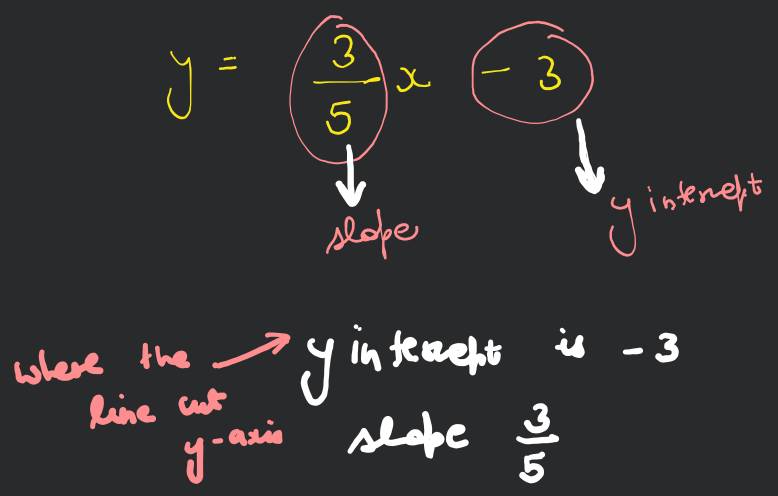 y = 3/5 x - 3
slope
y intercept
where the line cut y-axis
y intercept is -3
slope 3/5